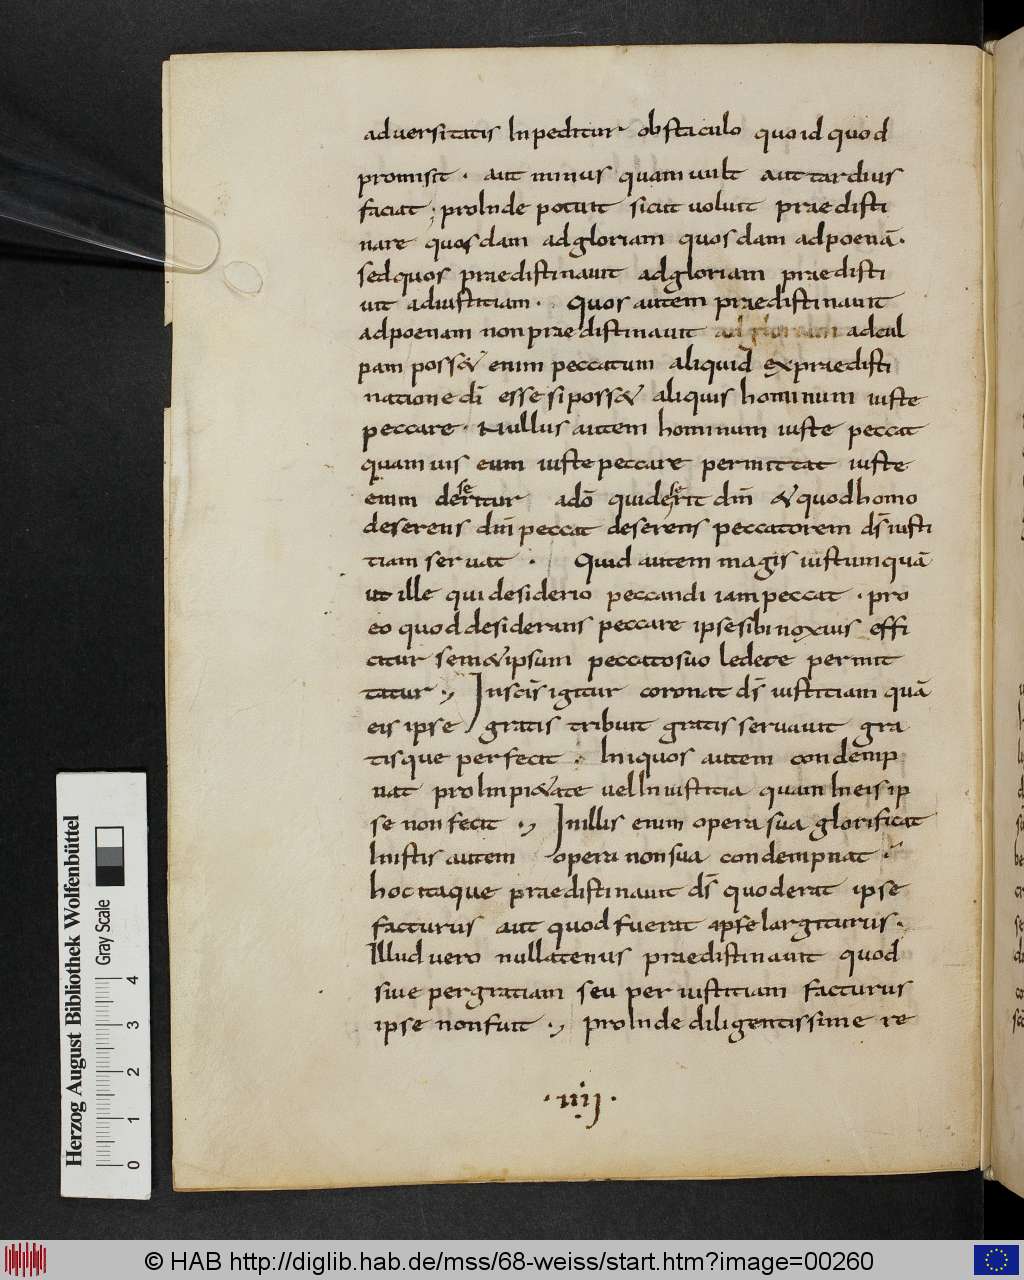 adversitatis Inpeditur obstaculo quo id quod
promisit · aut minus quam uult aut tardius
faciat ; proInde potuit sicut uoluit praedisti
nare quosdam adgloriam quosdam adpoenā·
sedquos praedistinauit adgloriam praedisti
uit adiustitiam· Quos autem praedistinauit
adpoenam non praedistinauit ad gloriam adcul
pam poss& enim peccatum aliquid expraedisti
natione dī esse si poss& aliquis hominum iuste
peccare· Nullus autem hominum iuste peccat
quam uis eum iuste peccare permittat iuste
enim deseritur adō quideserit dm̄ &quodhomo
deserens dm̄ peccat deserens peccatorem ds̄ iusti
tiam seruat · Quid autem magis iustumquā
ut ille qui desiderio peccandi iam peccat · pro
eo quod desiderans peccare ipse sibi noxius effi
citur sem&ipsum peccato suo ledere permit
tatur ·, Inscīs igitur coronat ds̄ iustitiam quā
eis ipse gratis tribuit gratis seruauit gra
tis que perfecit · Iniquos autem condemp
nat proImpi&ate uel Iniustitia quam Ineis ip
se non fecit ·, Inillis enim opera sua glorificat
Inistis autem opera non sua condempnat ·
hoc itaque praedistinauit ds̄ quoderat ipse
facturus aut quod fuerat ipse largiturus·
Illud uero nullatenus praedistinauit quod
siue pergratiam seu per iustitiam facturus
ipse nonfuit ·, proInde diligentissime re
· iiij ·
Herzog August Bibliothek Wolfenbüttel
Gray Scale
0 1 2 3 4
© HAB http://diglib.hab.de/mss/68-weiss/start.htm?image=00260